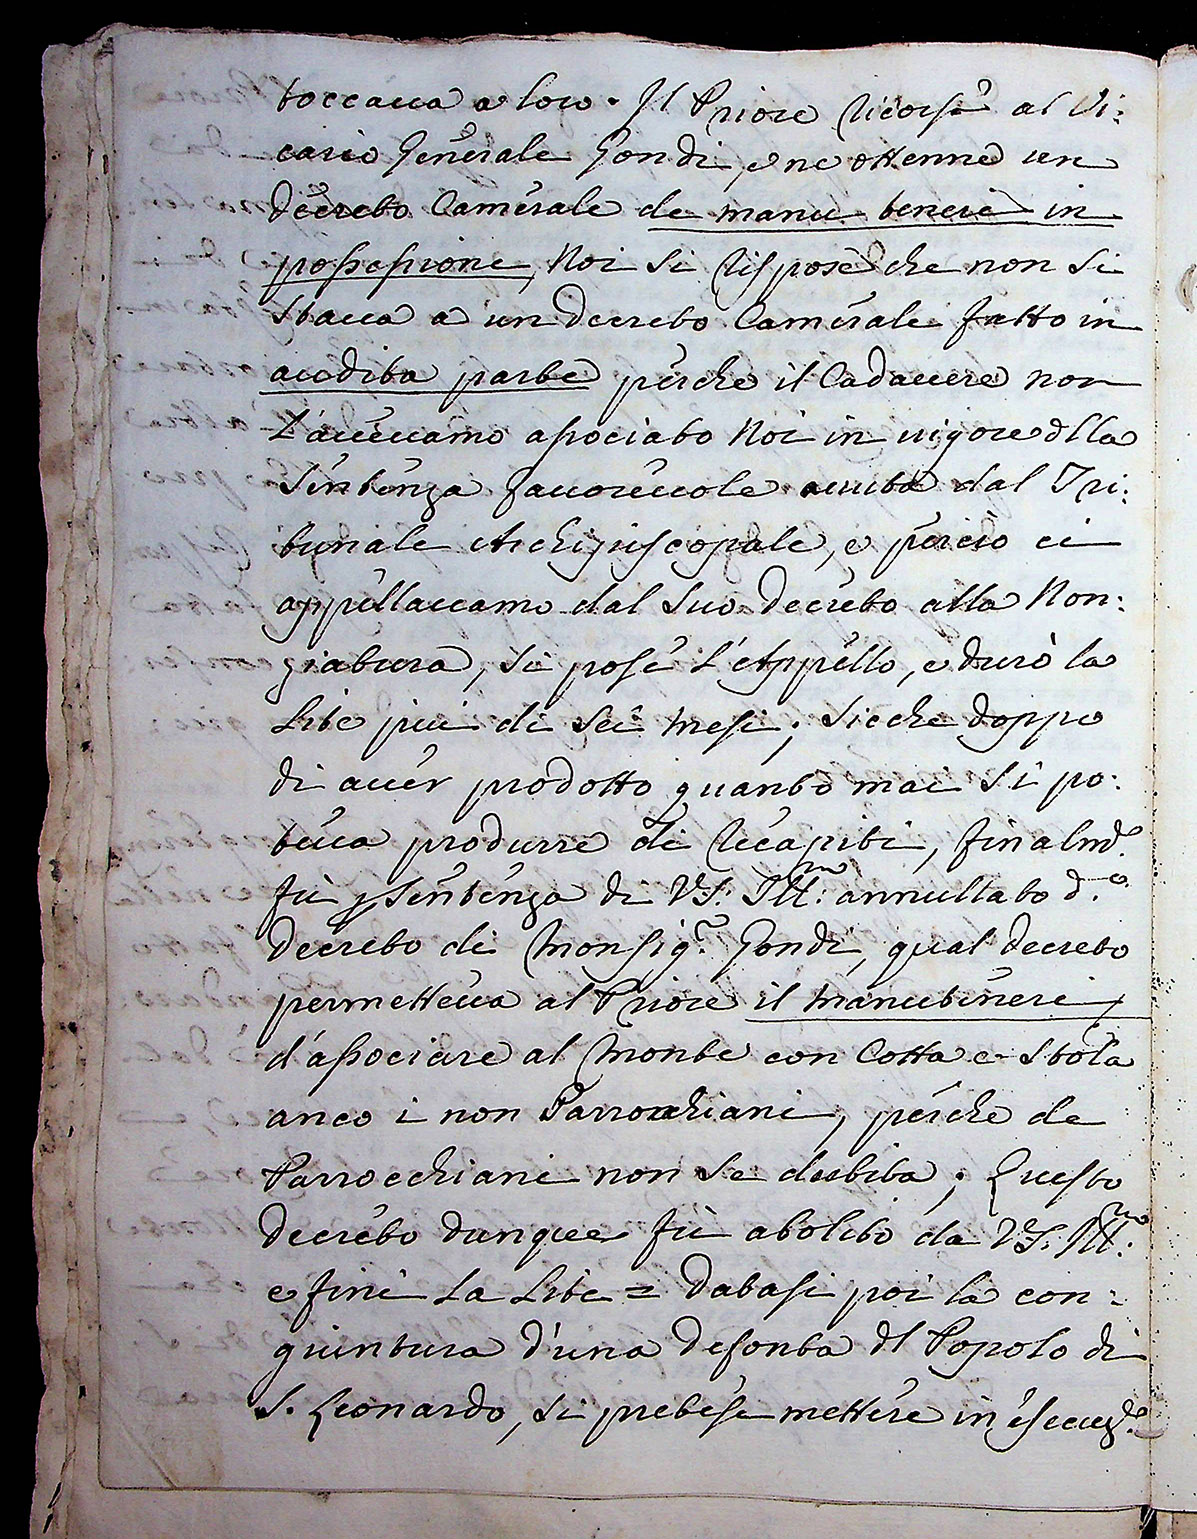 toccaua a loro. Il Priore ricorse al Vi:
cario Generale Gondi, e ne ottenne un
decreto Camerale de manu tenere in
possessione, Noi si rispose che non si
staua a un decreto Camerale fatto in
audita parte perche il Cadauere non
L'aueuamo asociato Noi in uigore dlla
Sentenza fauoreuole auuta dal Tri:
bunale Archiepiscopale, e perciò ci
appellauamo dal suo decreto alla Non:
ziatura, si pose L'Appello, e durò la
Lite piu di sei Mesi; sicche doppo
di auer prodotto quanto mai si po:
teua produrre di recapiti, finalmte.
fù p Sentenza di VS: Illma: annullato d.o
Decreto di Monsigr. Gondi, qual decreto
permetteua al Priore il manutenere
d'asociare al Monte con Cotta e Stola
anco i non Parrocchiani, perche de
Parrocchiani non se dubita; Questo
decreto dunque fù abolito da VS: Illma.
e finì La Lite = Datasi poi la con:
giuntura d'una defonta dl Popolo di
S. Leonardo, si pretese mettere in esecuzne.